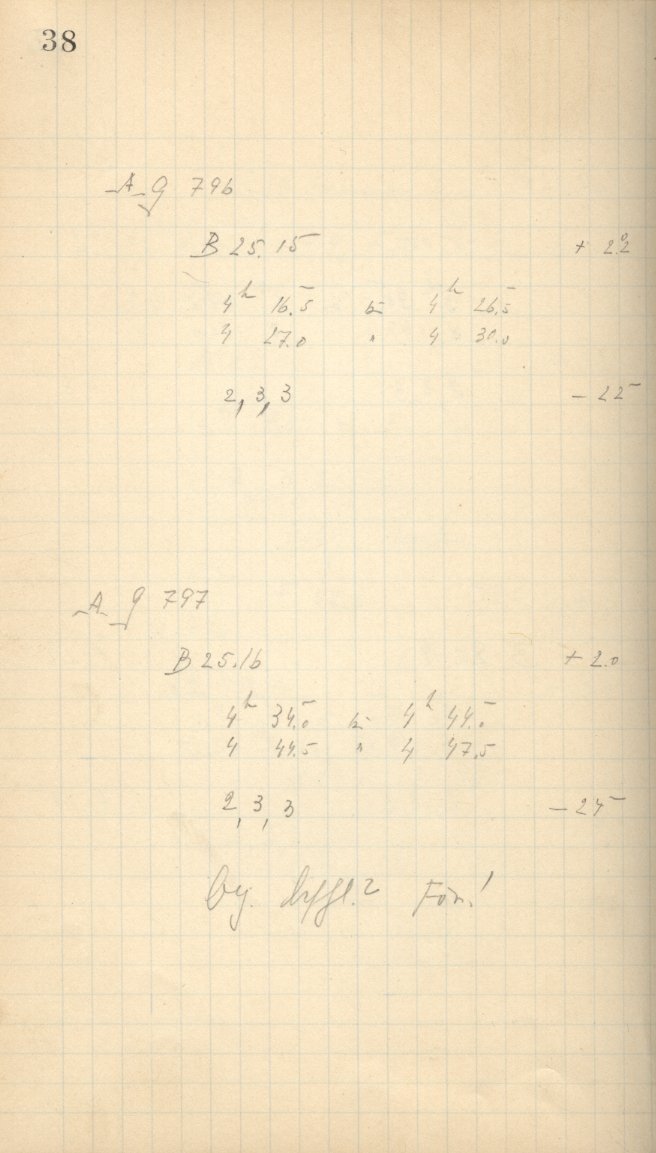 38
A g 796
B 25.15 + 2.°2
4h 16.5 bis 4h 26.5
4 27.0 " 4 30.0
2, 3, 3 – 22
A g 797
B 25.16 + 2.0
4h 34.0 bis 4h 44.0
4 44.5 " 4 47.5
2, 3, 3 – 24